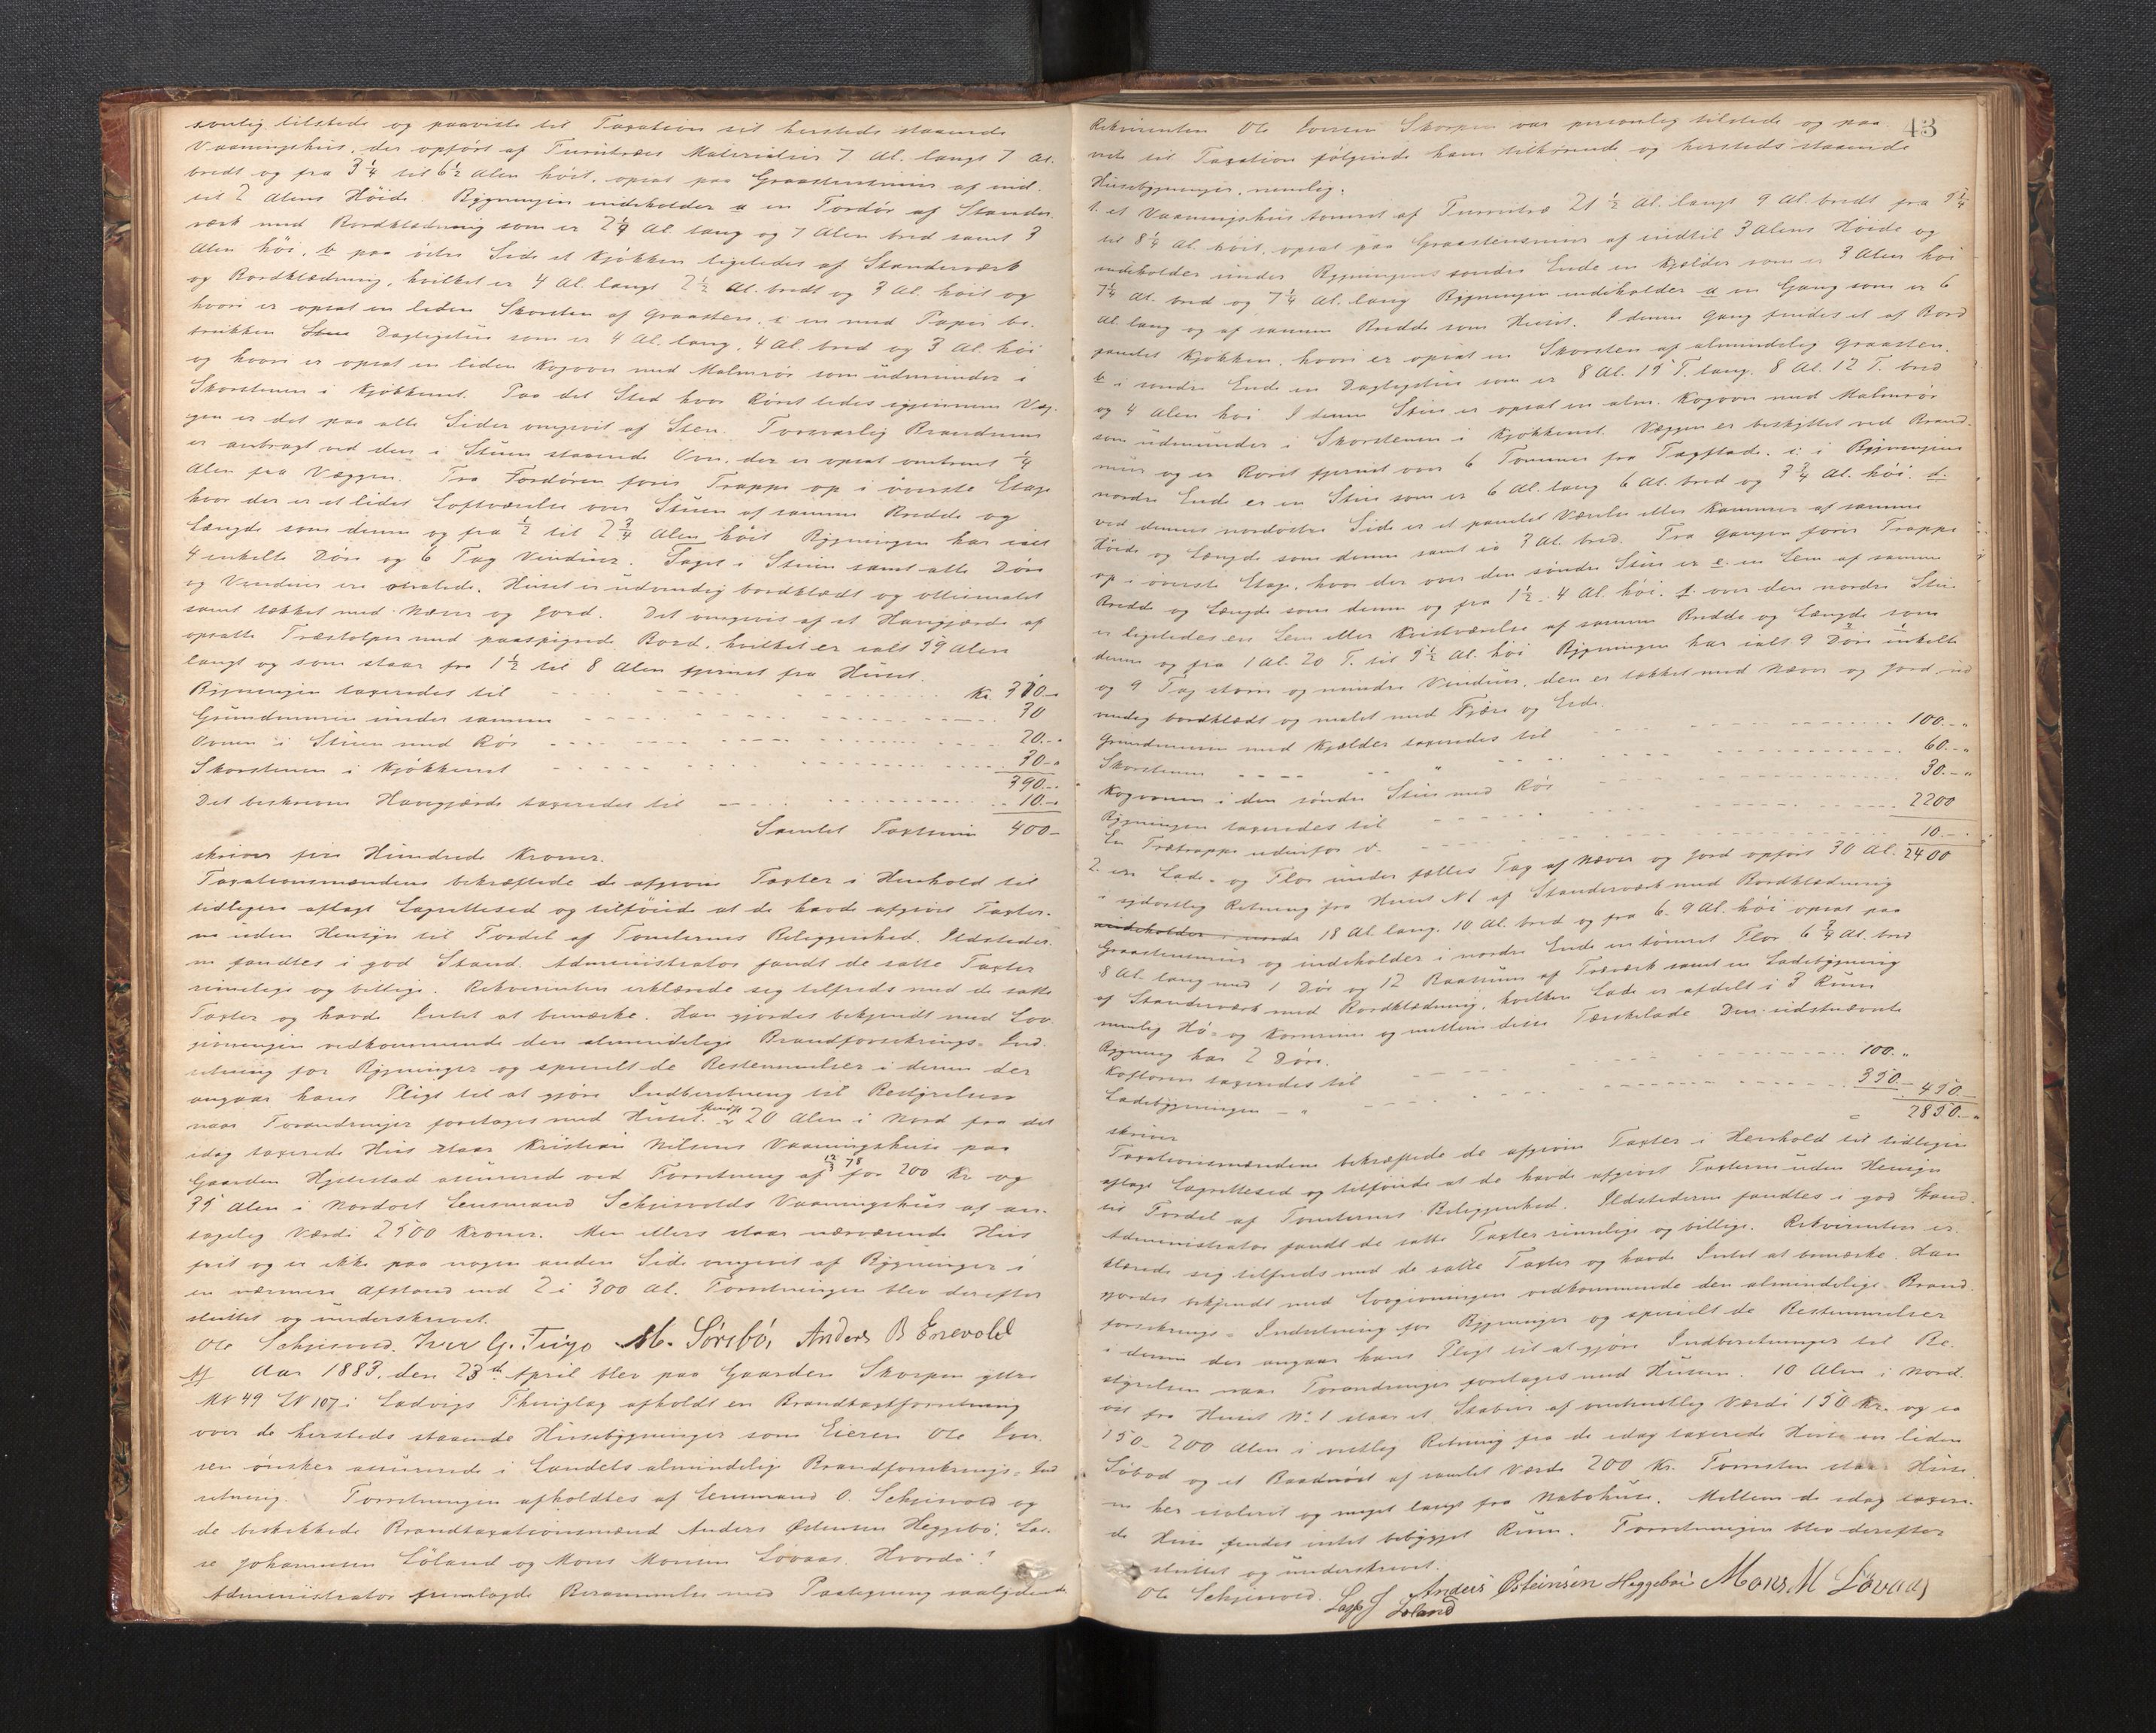 sonlig tilstede og paaviste til Taxation sit hersteds staaende
Vaaningshus, der opført af Furutræes Materialier 7 Al. langt 7 Al.
bredt og fra 3 1/4 til 6 1/2 Alen høit, opsat paa Graastensmur af ind-
til 2 Alens Høide. Bygningen indeholder a en Fordør af Stander-
værk med Bordklædning som er 2 1/4 Al. lang og 7 Alen bred samt 3
Alen høi, b paa östre Side et Kjøkken ligeledes af Standerværk
og Bordklædning, hvilket er 4 Al. langt 2 1/2 Al. bredt og 3 Al. høit og
hvori er opsat en liden Skorsten af Graasten, c en med Papir be-
trukken Dagligstue som er 4 Al. lang, 4 Al. bred og 3 Al. høi
og hvori er opsat en liden Kogovn med Malmrør som udmunder i
Skorstenen i Kjøkkenet. Paa det Sted hvor Røret ledes igjennem Væg-
gen er det paa alle Sider omgivet af Sten. Forsvarlig Brandmur
er anbragt ved den i Stuen staaende Ovn, der er opsat omtrent 1/4
Alen fra Væggen. Fra Fordøren fører Trappe op i øverste Etage
hvor der er et lidet Loftværelse over Stuen af samme Bredde og
Længde som denne og fra 1/2 til 2 3/4 Alen høit. Bygningen har ialt
4 enkelte Døre og 6 Fag Vinduer. Taget i Stuen samt alle Døre
og Vinduer ere malede. Huset er udvendig bordklædt og oliemalet
samt tækket med Næver og Jord. Det omgives af et Havegjærde af
opsatte Træstolper med paaspigrede Bord, hvilket er ialt 59 Alen
langt og som staar fra 1 1/2 til 8 Alen fjernet fra Huset.
Bygningen taxeredes til Kr. 310.-
Grundmuren under samme 30
Ovnen i Stuen med Rør 20.-
Skorstenen i Kjøkkenet 30.-
390.-
Det beskrevne Havegjærde taxeredes til 10.-
Samlet Taxtsum 400-
skriver fire Hundrede Kroner.
Taxationsmændene bekræftede de afgivne Taxter i Henhold til
tidligere aflagt Lagrettesed og tilføiede at de havde afgivet Taxter-
ne uden Hensyn til Fordel af Tomternes Beliggenhed. Ildsteder-
ne fandtes i god Stand. Administrator fandt de satte Taxter
rimelige og billige. Rekvirenten erklærede sig tilfreds med de satte
Taxter og havde Intet at bemærke. Han gjordes bekjendt med Lov-
givningen vedkommende den almindelige Brandforsikrings-Ind-
retning for Bygninger og specielt de Bestemmelser i denne der
angaar hans Pligt til at gjøre Indberetning til Bestyrelsen
naar Forandringer foretages med Huset. 20 Alen i Nord fra det
idag taxerede Hus staar Kristian Nilsens Vaaningshus paa
Gaarden Hjelestad assurerede ved Forretning af 12/3 78 for 200 Kr og
35 Alen i Nordost Lensmand Schjesvolds Vaaningshus af an-
tagelig Værdi 2500 Kroner. Men ellers staar nærværende Hus
frit og er ikke paa nogen anden Side omgivet af Bygninger i
en nærmere Afstand end 2 à 300 Al. Forretningen blev derefter
sluttet og underskrevet.
Ole Schjesvold. Iver G. Teige M. Sörebö, Anders B Enevold
Aar 1883, den 23de April blev paa Gaarden Skorpen ytre
MN 49 LN 107 i Ladvigs Thinglag afholdt en Brandtaxtforretning
over de hersteds staaende Husebygninger som Eieren Ole Iver-
sen ønsker assurerede i Landets almindelige Brandforsikrings-Ind
retning. Forretningen afholdtes af Lensmand O. Schjesvold og
de beskikkede Brandtaxationsmænd Anders Østensen Heggebø, Las-
se Johannesen Løland og Mons Monsen Løvaas. Hvorda!
Administrator fremlagde Berammelse med Paategning saalydende
43
Rekvirenten Ole Iversen Skorpen var personlig tilstede og paa-
viste til Taxation følgende ham tilhørende og hersteds staaende
Husebygninger, nemlig:
1. et Vaaningshus tømret af Furutræ 21 1/2 Al. langt 9 Al. bredt fra 5 1/4
til 8 1/4 Al. høit, opsat paa Graastensmur af indtil 3 Alens Høide og
indeholder under Bygningens søndre Ende en Kjelder som er 3 Alen høi
7 1/4 Al. bred og 7 1/4 Al. lang Bygningen indeholder a en Gang som er 6
Al. lang og af samme Bredde som Huset. I denne Gang findes et af Bord
panelet Kjøkken, hvori er opsat en Skorsten af almindelig Graasten.
b i søndre Ende en Dagligstue som er 8 Al. 15 T. lang. 8 Al. 12 T. bred
og 4 Alen høi I denne Stue er opsat en alm. Kogovn med Malmrør
som udmunder i Skorstenen i Kjøkkenet. Væggen er beskyttet ved Brand-
mur og er Røret fjernet over 6 Tommer fra Tagflade. c. i Bygningens
nordre Ende er en Stue som er 6 Al. lang 6 Al. bred og 3 3/4 Al. høi. d.
ved dennes nordostre Side er et panelet Værelse eller Kammer af samme
Høide og Længde som denne samt ca 3 Al. bred. Fra Gangen fører Trappe
op i øverste Etage, hvor der over den søndre Stue er e. en Lem af samme
Bredde og Længde som denne og fra 1 1/2 - 4 Al. høi. f. over den nordre Stue
er ligeledes en Lem eller Kvistværelse af samme Bredde og Længde som
denne og fra 1 Al. 20 T. til 3 1/2 Al. høi Bygningen har ialt 9 Døre enkelte
og 9 Fag større og mindre Vinduer, den er tækket med Næver og Jord, ud
vendig bordklædt og malet med Tjære og Erde.
Grundmuren med Kjælder taxeredes til 100.-"
Skorstenen 60.-"
Kogovnen i den søndre Stue med Rør 30.-"
Bygningen taxeredes til 2200
En Trætrappe udenfor d. 10.-
2. en Lade- og Flor under fælles Tag af Næver og Jord opført 30 Al. 2400
i sydostlig Retning fra Huset N 1 af Standerværk med Bordklædning
18 Al. lang. 10 Al. bred og fra 6-9 Al. høi opsat paa
Graastensmur og indeholder i nordre Ende en tømret Flor 6 3/4 Al. bred
8 Al. lang med 1 Dør og 12 Baasrum af Træværk samt en Ladebygning
af Standerværk med Bordklædning, hvilken Lade er afdelt i 3 Rum
nemlig Hø- og Kornrum og mellem disse Tærskelade Den sidstnævnte
Bygning har 2 Døre.
Kofloren taxeredes til 100.-"
Ladebygningen - " 350.- 450.-
2850.-
skriver
Taxationsmændene bekræftede de afgivne Taxter i Henhold til tidligere
aflagt Lagrettesed og tilføiede at de havde afgivet Taxterne uden Hensyn
til Fordel af Tomternes Beliggenhed. Ildstederne fandtes i god Stand.
Administrator fandt de satte Taxter rimelige og billige. Rekvirenten er-
klærede sig tilfreds med de satte Taxter og havde Intet at bemærke. Han
gjordes bekjendt med Lovgivningen vedkommende den almindelige Brand-
forsikrings-Indretning for Bygninger og specielt de Bestemmelser
i denne der angaar hans Pligt til at gjøre Indberetninger til Be-
styrelsen naar Forandringer foretages med Husene. 10 Alen i Nord-
ost fra Huset No 1 staar et Stabur af omtrentlig Værdi 150 Kr. og ca
150-200 Alen i vestlig Retning fra de idag taxerede Huse en liden
Søbod og et Baadnøst af samlet Værdi 200 Kr. Forresten staar Huse-
ne her isoleret og meget langt fra Nabohuse. Mellem de idag taxere-
de Huse findes intet bebygget Rum. Forretningen blev derefter
sluttet og underskrevet.
Ole Schjesvold. Lasse J Løland Anders Østeinsen Heggebøe Mons M Løvaas